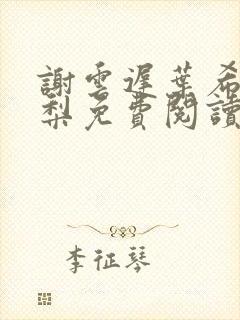 謝雲遲葉希
梨免費閱讀
李征琴